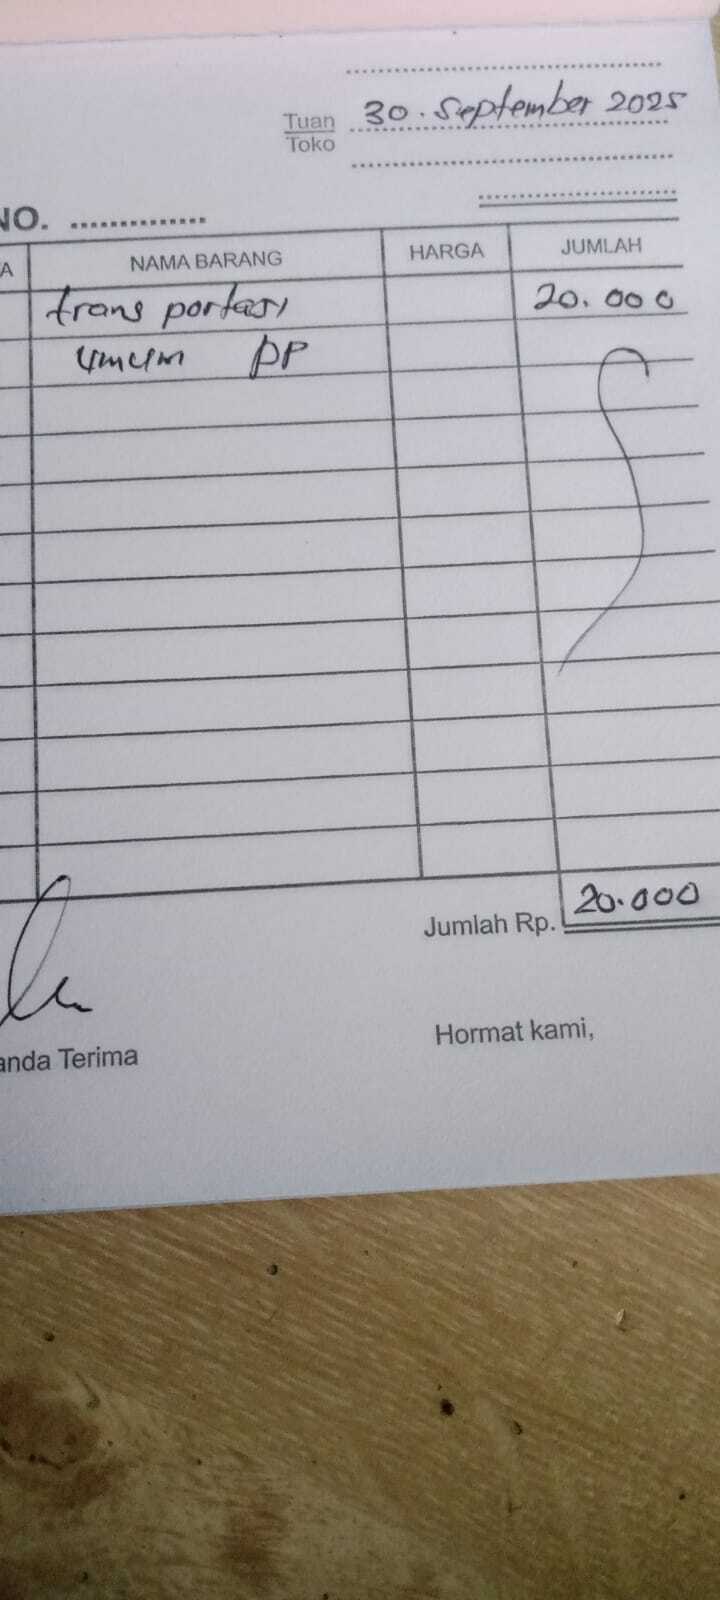 30. September 2025
Tuan
Toko
NO. ...............
A NAMA BARANG HARGA JUMLAH
transportasi 20.000
umum PP
Jumlah Rp. 20.000
anda Terima Hormat kami,